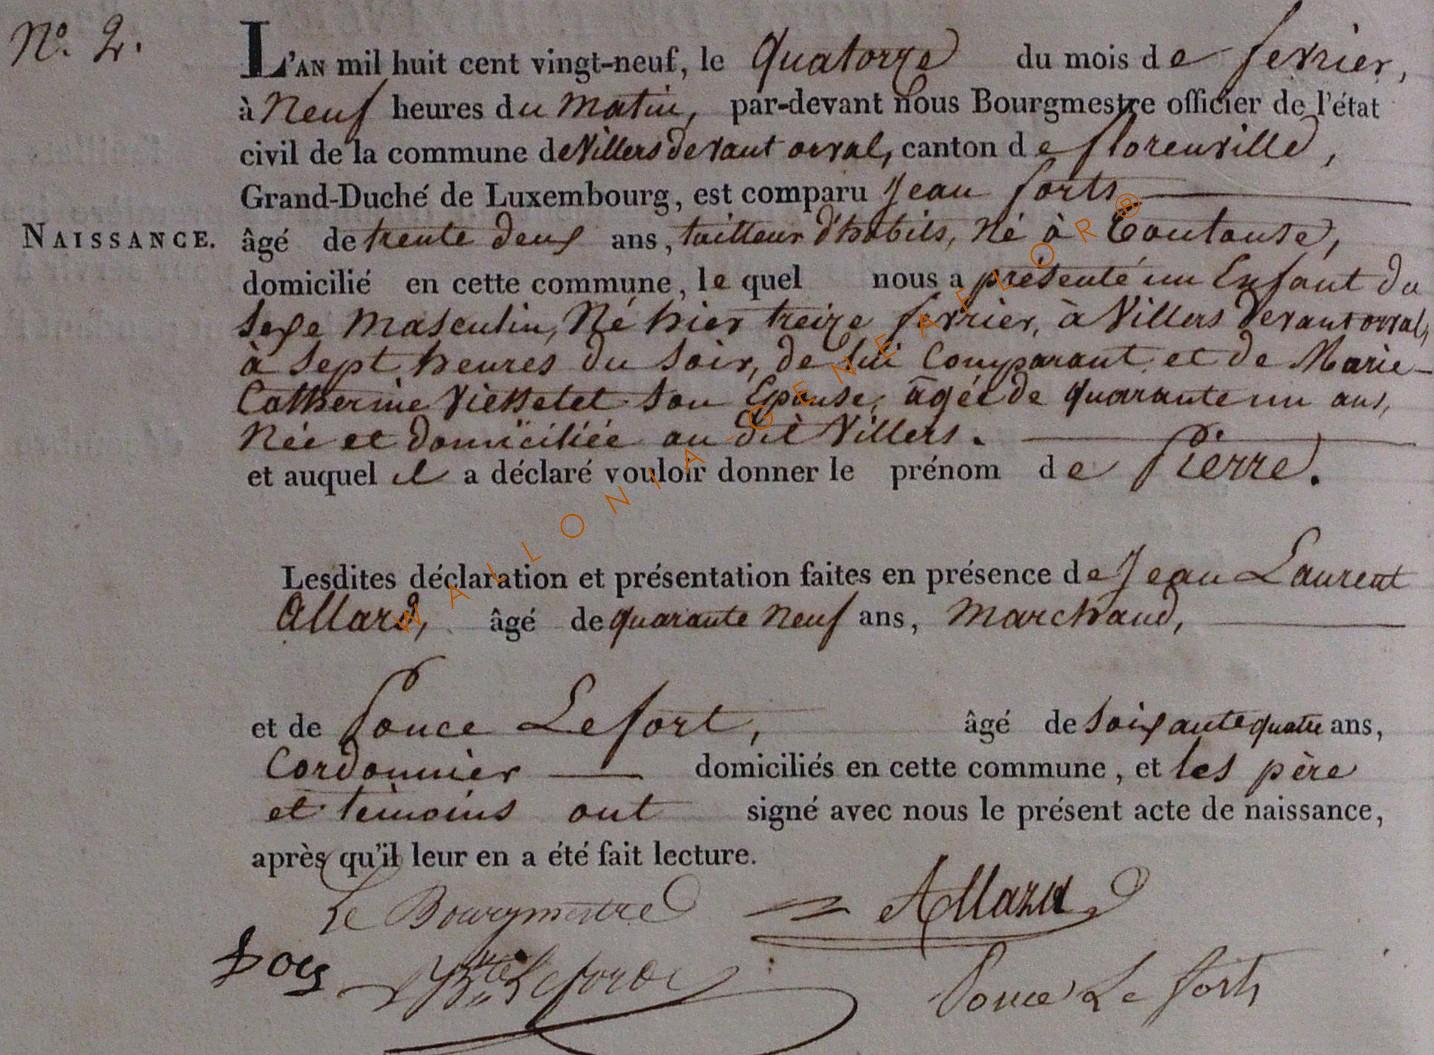 N.º 2.
L'AN mil huit cent vingt-neuf, le quatorze du mois de fevrier,
à neuf heures du matin, par-devant nous Bourgmestre officier de l'état
civil de la commune de Villers devant orval, canton de florenville,
Grand-Duché de Luxembourg, est comparu Jean forts
NAISSANCE. âgé de trente deux ans, tailleur d'habits, né à Toulouse,
domicilié en cette commune, le quel nous a présenté un Enfant du
sexe masculin, Né hier treize fevrier, à Villers devant orval,
à sept heures du soir, de lui Comparant et de Marie-
Catherine son Epouse, agée de quarante un ans,
Née et domiciliée au dit Villers.
et auquel il a déclaré vouloir donner le prénom de Pierre.
Lesdites déclaration et présentation faites en présence de Jean Laurent
Allard, âgé de quarante neuf ans, Marchand,
et de Ponce Lefort, âgé de soixante quatre ans,
Cordonnier domiciliés en cette commune, et les père
et témoins ont signé avec nous le présent acte de naissance,
après qu'il leur en a été fait lecture.
Le Bourgmestre Allard
Ponce Le forts
WALLONIA GENEAFLOR®